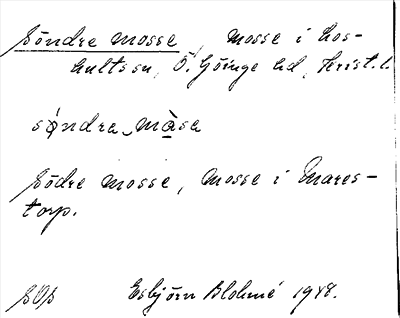 Söndre mosse, mosse i Los-
hultssn, Ö. Göinge hd, Krist. l.
söndra måsa
Södre mosse, mosse i Mares-
torp.
SOS Esbjörn Blohmé 1948.